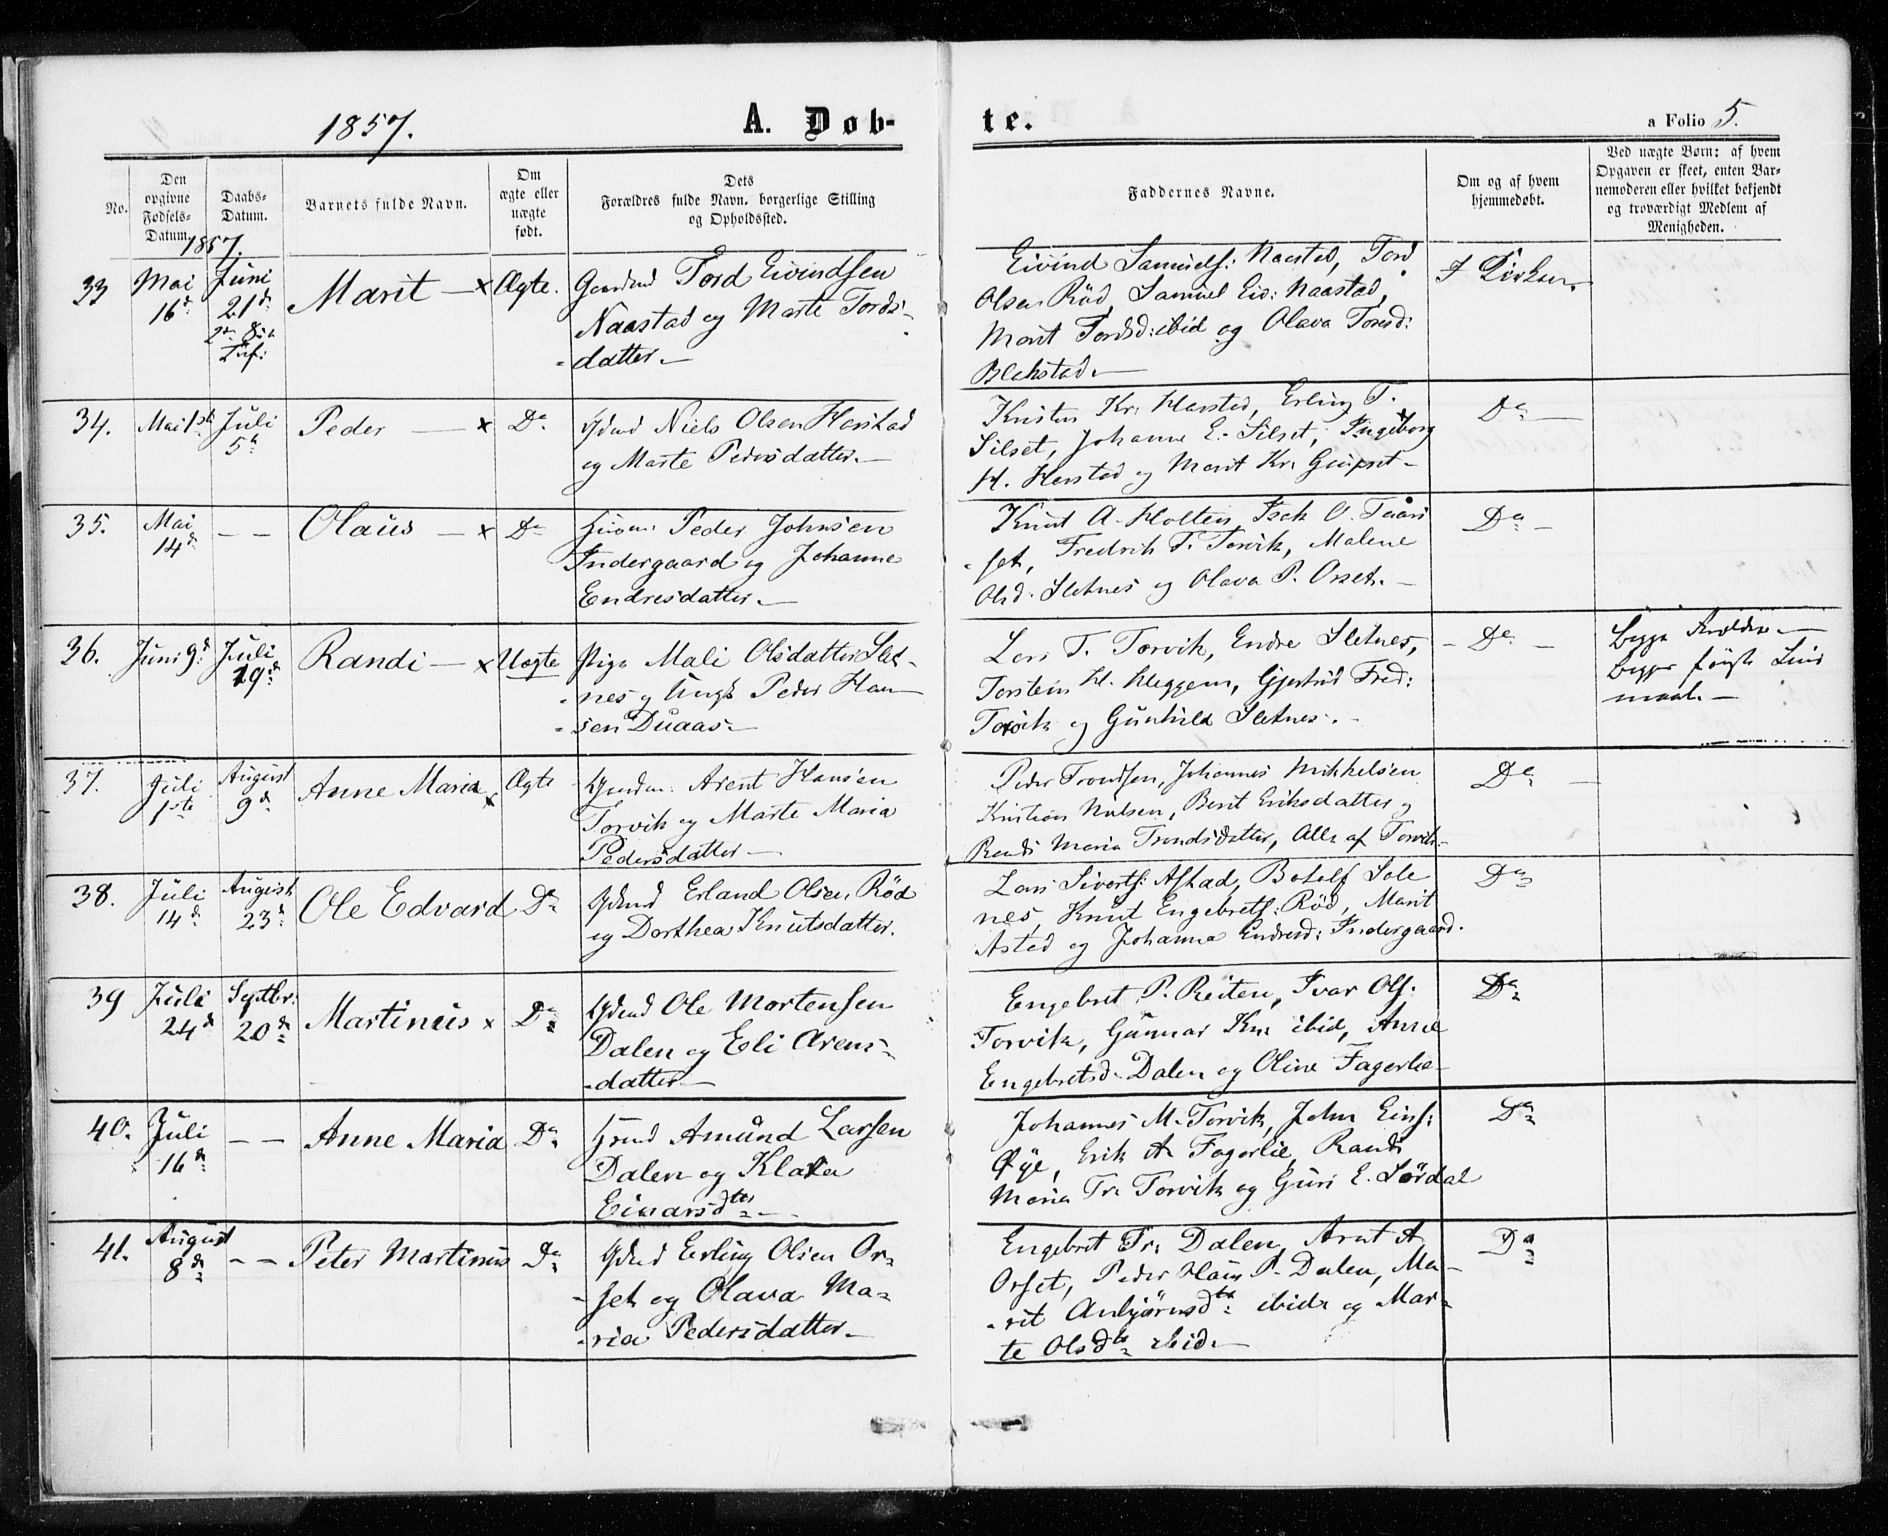 1857. A. Døb- te. a Folio 5.
No.
Den opgivne Fødsels-Datum.
Daabs-Datum.
Barnets fulde Navn.
Om ægte eller uægte født.
Dets Forældres fulde Navn, borgerlige Stilling og Opholdssted.
Faddernes Navne.
Om og af hvem hjemmedøbt.
Ved uægte Børn: af hvem Opgaven er skeet, enten Barnemoderen eller hvilket bekjendt og troværdigt Medlem af Menigheden.
1857.
33 Mai 16d Juni 21d Marit — x Ægte. Tord Eivindsen
Naastad og Marte Tords-
-datter.—
Eivind Samuels: Naastad, Tord
Olsen Röd, Samuel Eiv: Naastad,
Marit Tordsd: ibid og Olava Toresd:
Blekstad.—
I Kirken.
34. Mai 1st Juli 5t Peder — x Do Niels Olsen Harstad
og Marte Pedersdatter.—
Kristen Kr: Harstad, Erling T.
Silset, Johanne E. Silset, Ingeborg
H. Harstad og Marit Kr:
Do —
35. Mai 14d — — Olaüs — x Do Peder Johnsen
Indergaard og Johanne
Endresdatter.—
Knut A. Holten, Isak O.
-set, Fredrik T. Torvik, Malene
Olsd. Sletnes og Olava P. Orset.—
Do —
36. Juni 9d Juli 19d Randi — x Uægte Pige Mali Olsdatter Slet-
-nes og Ungk Peder Han-
-sen Duaas—
Lars T. Torvik, Endre Sletnes,
Torstein H. Kleggem, Gjertrud Fred:
Torvik og Günhild Sletnes.—
- Do -
begge Forældre —
begges første Leier
maal.—
37. Juli 1ste August 9d Anne Maria x Ægte Arent Hansen
Torvik og Marte Maria
Pedersdatter —
Peder Trondsen, Johannes Mikkelsen
Kristian Nielsen, Berit Eriksdatter og
Randi Maria Trondsdatter, Alle af Torvik—
Do —
38. Juli 14d August 23d Ole Edvard Do Erland Olsen Röd
og Dorthea Knutsdatter.
Lars Siverts: Astad, Botolf Sole
nes, Knut Engebrets: Röd, Marit
Astad og Johanna Endresd: Indergaard.
Do
39 Juli 24d Septbr: 20d Martinus x Do Ole Mortensen
Dalen og Eli Arens-
-datter—
Engebret P. Reiten, Ivar Ols:
Torvik, Gunnar Kn: ibid, Anne
Engebretsd. Dalen og Oline Fagerlie—
Do
40. Juli 16d — — Anne Maria Do Amund Larsen
Dalen og Klara
Einarsdtr —
Johannes M. Torvik, John Eins:
Øye, Erik A Fagerlie, Randi
Maria Tr: Torvik og Guri E. Sördal
Do
41. August 8d — — Peter Martinus Do Erling Olsen Or-
-set og Olava Ma-
-ria Pedersdatter—
Engebret Tr: Dalen, Arnt A
Orset, Peder Hans P. Dalen, Ma-
-rit Anbjørnsdtr ibid og Mar-
te Olsdtr ibid.—
Do